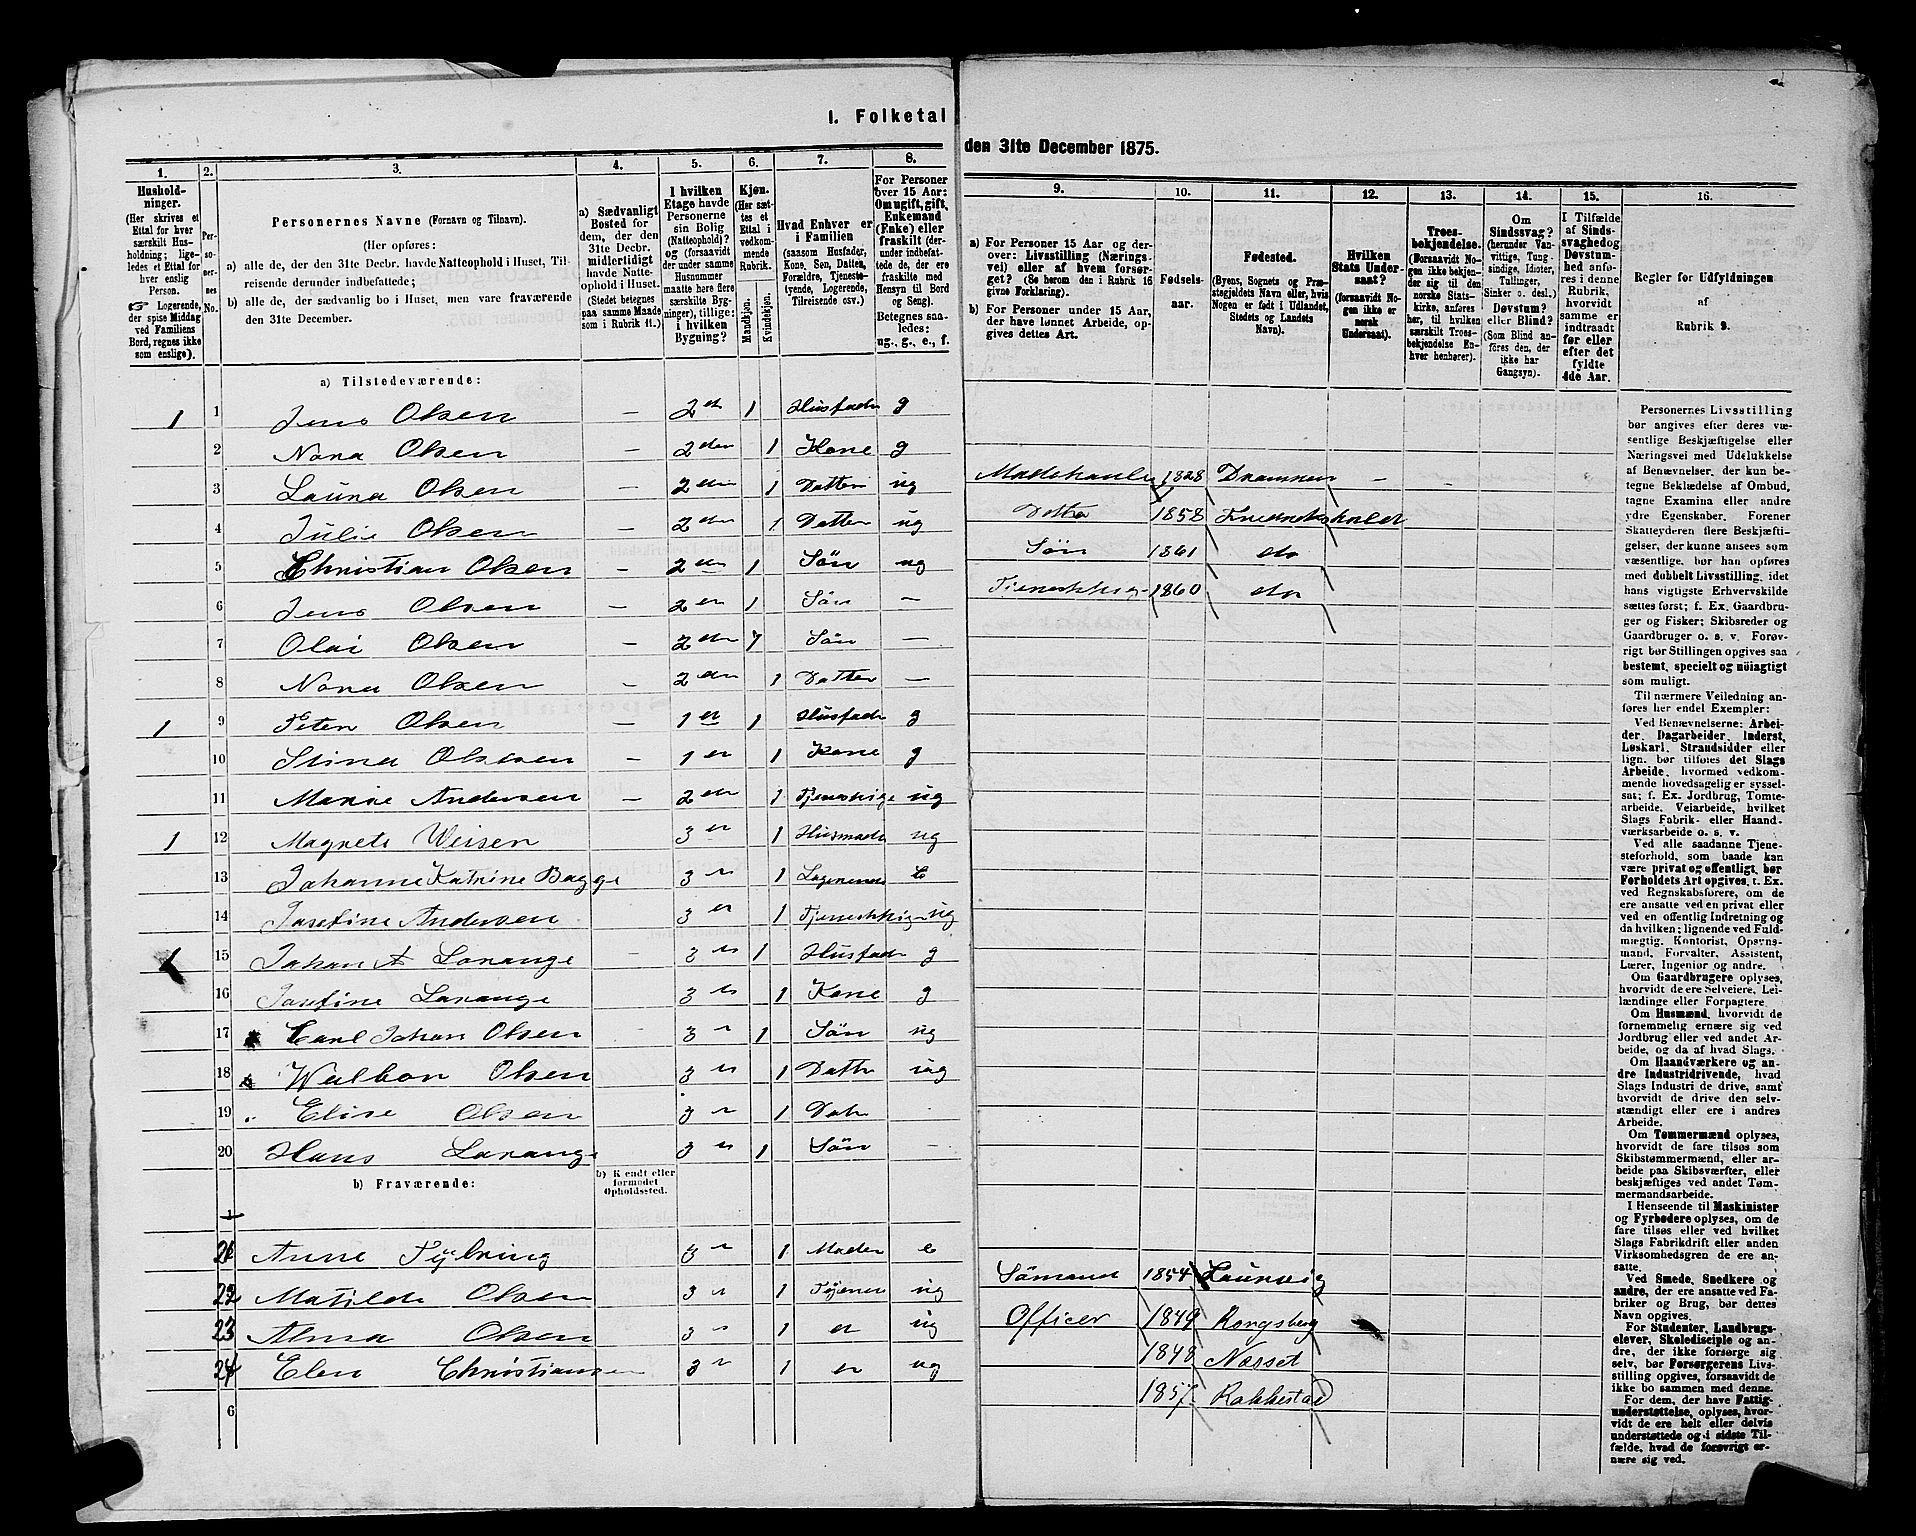 I. Folketal
1. 2. 3. 4. 5. 6. 7. 8.
Hushold-
ninger.
(Her skrives et
Ettal for hver
særskilt Hus-
holdning; lige-
ledes et Ettal for
hver enslig
Person.
☞ Logerende,
der spise Middag
ved Familiens
Bord, regnes ikke
som enslige).
Per-
so-
ner-
nes
No.
Personernes Navne (Fornavn og Tilnavn).
(Her opføres:
a) alle de, der den 31te Decbr. havde Natteophold i Huset, Til-
reisende derunder indbefattede;
b) alle de, der sædvanlig bo i Huset, men vare fraværende
den 31te December.
a) Sædvanligt
Bosted for
dem, der den
31te Decbr.
midlertidigt
havde Natte-
ophold i Huset.
(Stedet betegnes
paa samme Maade
som i Rubrik 11.)
I hvilken
Etage havde
Personerne
sin Bolig
(Natteophold)?
(forsaavidt
der under samme
Husnummer
maatte høre flere
særskilte Byg-
ninger), tillige:
i hvilken
Bygning?
Kjøn.
(Her sæt-
tes et
Ettal i
vedkom-
mende
Rubrik.
Mandkjøn.
Kvindekjøn.
Hvad Enhver er
i Familien
(saasom Husfader,
Kone, Søn, Datter,
Forældre, Tjeneste-
tyende, Logerende,
Tilreisende osv.)
For Personer
over 15 Aar:
Om ugift, gift,
Enkemand
(Enke) eller
fraskilt (der-
under indbefat-
tede de, der ere
fraskilte med
Hensyn til Bord
og Seng).
Betegnes saa-
ledes:
ug., g., e., f.
a) Tilstedeværende:
1 1 Jens Olsen — 2den 1 Husfader g
2 Nona Olsen — 2den 1 Kone g
3 Laura Olsen — 2den 1 Datter ug
4 Julie Olsen — 2den 1 Datter ug
5 Christian Olsen — 2den 1 Søn ug
6 Jens Olsen — 2en 1 Søn —
7 Olai Olsen — 2den 1 Søn —
8 Nona Olsen — 2den 1 Datter —
1 9 Peter Olsen — 1er 1 Husfader g
10 Stina Olsen — 1er 1 Kone g
11 Marie Andersen — 2den 1 Tjenestpige ug
1 12 Magnete Weisen 3er 1 Husmoder ug
13 Johanne Katrine Bagge 3 1 Logerende E
14 Josefine Andersen 3er 1 Tjenestpige ug
1 15 Johan A Lorange 3 1 Husfader g
16 Josefine Lorange 3 1 Kone g
17 Carl Johan Olsen 3 1 Søn ug
18 Walbor Olsen 3 1 Datter ug
19 Elise Olsen 3 1 Dater
20 Hans Lorange 3 1 Søn —
b) Fraværende:
b) Kjendt eller
formodet
Opholdssted.
1
21 Anne Tybring 3 1 Moder e
22 Matilde Olsen 3 1 ug
23 Alma Olsen 3 1 ug
24 Elen Christiansen 3 1 ug
6
den 31te December 1875.
9. 10. 11. 12. 13. 14. 15. 16.
a) For Personer 15 Aar og der-
over: Livsstilling (Nærings-
vei) eller af hvem forsør-
get? (Se herom den i Rubrik 16
givne Forklaring).
b) For Personer under 15 Aar,
der have lønnet Arbeide, op-
gives dettes Art.
Fødsels-
aar.
Fødested.
(Byens, Sognets og Præ-
stegjeldets Navn eller, hvis
Nogen er født i Udlandet,
Stedets og Landets
Navn).
Hvilken
Stats Under-
saat?
(forsaavidt No-
gen ikke er
norsk
Undersaat).
Troes-
bekjendelse.
(Forsaavidt No-
gen ikke bekjen-
der sig til den
norske Stats-
kirke, anføres
her, til hvilken
særskilt Troes-
bekjendelse En-
hver henhører).
Om
Sindssvag?
(herunder Van-
vittige, Tung-
sindige, Idioter,
Tullinger,
Sinker o. desl.)
Døvstum?
eller Blind?
(Som Blind an-
føres den, der
ikke har
Gangsyn).
I Tilfælde
af Sinds-
svaghed og
Døvstum-
hed anfø-
res i denne
Rubrik,
hvorvidt
samme er
indtraadt
før eller
efter det
fyldte
4de Aar.
Regler for Udfyldningen
af
Rubrik 9.
1828 Drammen — —
Datter 1858 Fredrekshald
Søn 1861 do
1860 do
Sømand 1854 Laurvig
Officer 1849 Kongsberg
1848 Næsset
1857 Rakkestad
Personernes Livsstilling
bør angives efter deres væ-
sentlige Beskjæftigelse eller
Næringsvei med Udelukkelse
af Benævnelser, der kun be-
tegne Beklædelse af Ombud,
tagne Examina eller andre
ydre Egenskaber. Forener
Skatteyderen flere Beskjæfti-
gelser, der kunne ansees som
væsentlige, bør han opføres
med dobbelt Livsstilling, idet
hans vigtigste Erhvervskilde
sættes først; f. Ex. Gaardbru-
ger og Fisker; Skibsreder og
Gaardbruger o. s. v. Forøv-
rigt bør Stillingen opgives saa
bestemt, specielt og nöiagtigt
som muligt.
Til nærmere Veiledning an-
føres her endel Exempler:
Ved Benævnelserne: Arbei-
der, Dagarbeider, Inderst,
Løskarl, Strandsidder eller
lign. bør tilføres det Slags
Arbeide, hvormed vedkom-
mende hovedsagelig er syssel-
sat; f. Ex. Jordbrug, Tomte-
arbeide, Veiarbeide, hvilket
Slags Fabrik- eller Haand-
værksarbeide o. s. v.
Ved alle saadanne Tjene-
steforhold, som baade kan
være privat og offentligt, bør
Forholdets Art opgives, t. Ex.
ved Regnskabsførere, om de
ere ansatte ved en privat eller
ved en offentlig Indretning og
da hvilken; lignende ved Fuld-
mægtig, Kontorist, Opsyns-
mand, Forvalter, Assistent,
Lærer, Ingeniør og andre.
Om Gaardbrugere oplyses,
hvorvidt de ere Selveiere, Lei-
lændinge eller Forpagtere.
Om Husmænd, hvorvidt de
fornemmelig ernære sig ved
Jordbrug eller ved andet Ar-
beide, og da af hvad Slags.
Om Haandværkere og an-
dre Industridrivende, hvad
Slags Industri de drive, samt
hvorvidt de drive den selv-
stændigt eller ere i andres
Arbeide.
Om Tømmermænd oplyses,
hvorvidt de fare tilsøs som
Skibstømmermænd, eller ar-
beide paa Skibsværfter, eller
beskjæftiges ved andet Tøm-
mermandsarbeide.
I Henseende til Maskinister
og Fyrbødere oplyses, om de
fare tilsøs eller ved hvilket
Slags Fabrikdrift eller anden
Virksomhedsgren de ere an-
satte.
Ved Smede, Snedkere og
andre, der ere ansatte ved Fa-
briker og Brug, bør dettes
Navn opgives.
For Studenter, Landbrugs-
elever, Skoledisciple og an-
dre, der ikke forsørge sig
selv, bør Forsørgerens Livs-
stilling opgives, forsaavidt de
ikke bo sammen med denne.
For dem, der have Fattig-
understøttelse, oplyses, hvor-
vidt de ere helt eller delvis
understøttede og i sidste Til-
fælde, hvad de forøvrigt er-
nære sig ved.